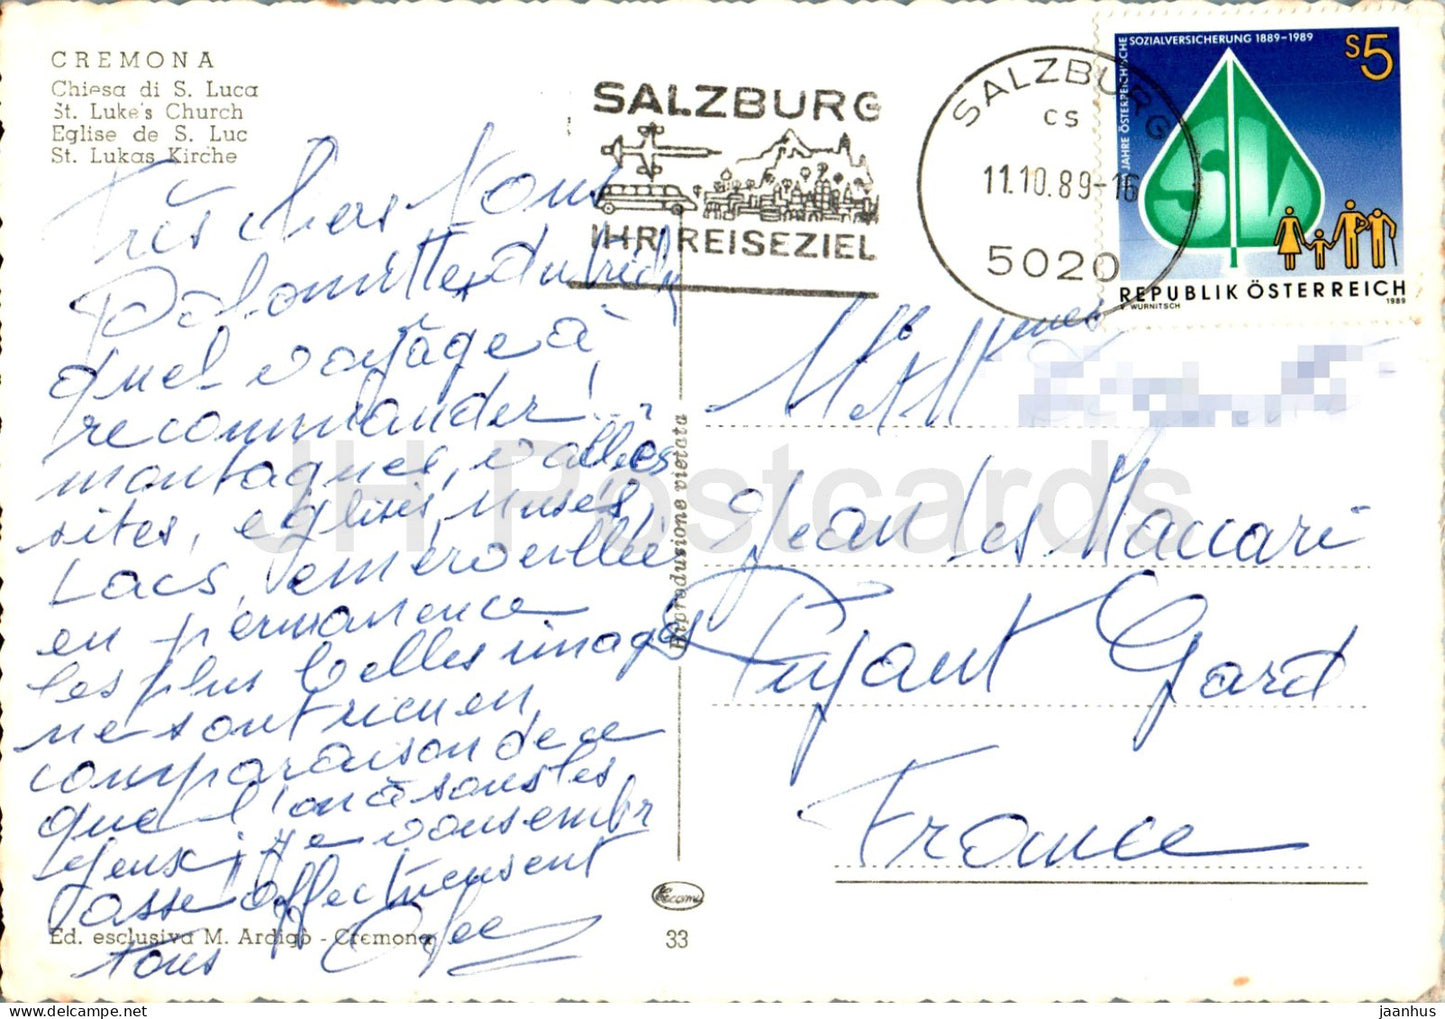 CREMONA
Chiesa di S. Luca
St. Luke's Church
Eglise de S. Luc
St. Lukas Kirche
SALZBURG
IHR REISEZIEL
SALZBURG
CS
11.10.89-16
5020
100 JAHRE ÖSTERREICHISCHE
SOZIALVERSICHERUNG 1889-1989
S5
SV
REPUBLIK ÖSTERREICH
WURNITSCH
1989
Très chers Tous
Dolomittes du
quel voyage à
recommander!
montagnes, vallées
sites, églises, musés,
Lacs, émerveillé
en permanence
les plus belles images
ne sont rien en
comparaison de ce
que l'on à sous les
yeux, je vous embr
asse affectueusement
tous
Mr Mmes
Jean Les Maccari
Pujaut Gard
France
Riproduzione vietata
Ed. esclusiva M. Ardigò - Cremona
33
JH Postcards
jaanhus